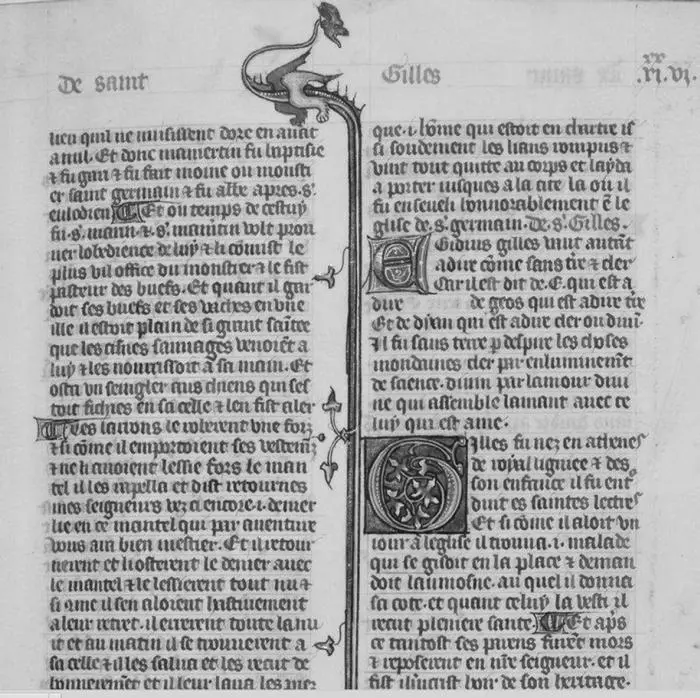 De saint
Gilles
.xx.
.vi. vi.
lieu quil ne nuisissent dore en auāt
a nul. Et donc mamertin fu baptisie
⁊ fu gari ⁊ fu fait moine ou mousti
er saint germain ⁊ fu abbe apres. s'.
eulodien. Et ou temps de cestuy
fu .s'. marin ⁊ .s'. mamtin volt prou
uer lobedience de luy ⁊ li cōmist le
plus vil office du monstier ⁊ le fist
pasteur des buefs. Et quant il gar
doit ses buefs et ses vaches en vne
ille il estoit plain de si grant saītee
que les cisnes sauuages venoiēt a
luy ⁊ les nourrissoit a sa main. Et
osta vn sengler aus chiens qui ses
toit fichies en sa celle ⁊ len fist aler
Les larrons le roberent vne foiz
⁊ si cōme il emportoient ses vestemēz
⁊ ne li auoient lessie fors le man
tel il les rapella et dist retournes
mes seigneurs vez ci encore .i. denier
lie en ce mantel qui par auenture
vous aura bien mestier. Et il retour
nerent et li osterent le denier auec
le mantel ⁊ le lessierent tout nu ⁊
si cōme il sen aloient hastiuement
a leur retret. il errerent toute la nu
it et au matin il se trouuerent a
sa celle ⁊ il les salua et les recut de
bonnerement et il leur laua les piez
que .i. hōme qui estoit en chartre is
si soudement les lians rompus ⁊
vint tout quitte au corps et layda
a porter iusques a la cite la ou il
fu enseueli honnorablement ē le
glise de .s'. germain. De .s'. Gilles.
Egidius gilles vaut autāt
a dire cōme sans tīre ⁊ cler
Car il est dit de .E. qui est a
dire de geos qui est a dire tīre
Et de dyan qui est a dire cler ou diuī.
Il fu sans terre p despire les choses
mondaines cler par enluminemēt
de science. diuin par lamour diui
ne qui assemble lamant auec ce
luy qui est ame.
Gilles fu nez en athenes
de royal lignee ⁊ des
son enfance il fu enf
duit es saintes lectres
Et si cōme il aloit vn
iour a leglise il trouua .i. malade
qui se gisoit en la place ⁊ deman
doit laumosne. au quel il donna
sa cote. et quant celuy la vesti il
recut pleniere sante. Et ap's
ce tantost ses parens furēt mors
⁊ reposerent en nīre seigneur. et il
fist ihūcrist hoir de son heritage.